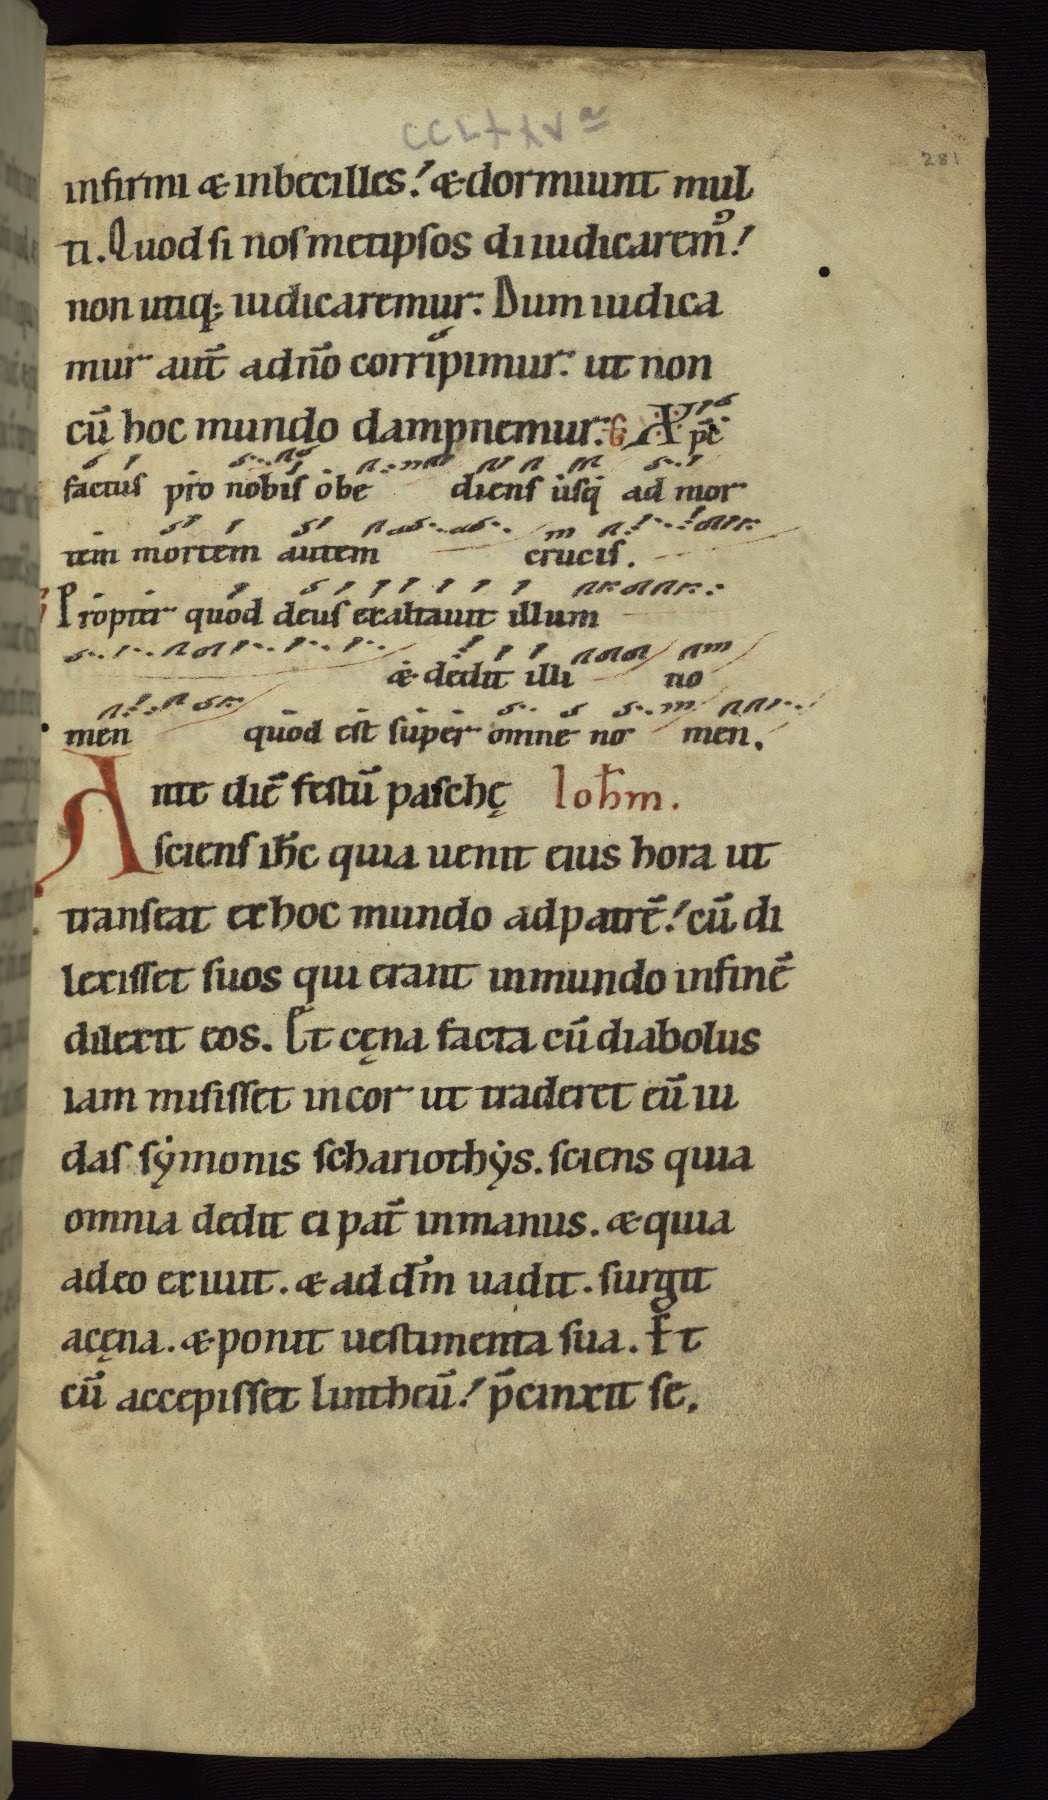 CCLXXVª
281
infirmi æ inbecilles! æ dormiunt mul
ti. Quod si nosmetipsos diiudicarem᷒!
non utiq; iudicaremur. Dum iudica
mur aut̄ adn̄o corripimur. ut non
cū hoc mundo dampnemur. G Xp̄c
factus pro nobis obe diens usq; ad mor
tem mortem autem crucis.
Propter quod deus exaltauit illum
æ dedit illi no
men quod est super omne no men.
Ante diē festū paschę Ioħm.
sciens ih̄c quia uenit eius hora ut
transeat ex hoc mundo ad patrē! cū di
lexisset suos qui erant in mundo in finē
dilexit eos. Et cęna facta cū diabolus
iam misisset in cor ut traderet eū iu
das sẏmonis schariothẏs. sciens quia
omnia dedit ei pat̄ in manus. æ quia
adeo exiuit. æ ad dm̄ uadit. surgit
acęna. æ ponit uestimenta sua. Et
cū accepisset lintheū! p̄cinxit se.